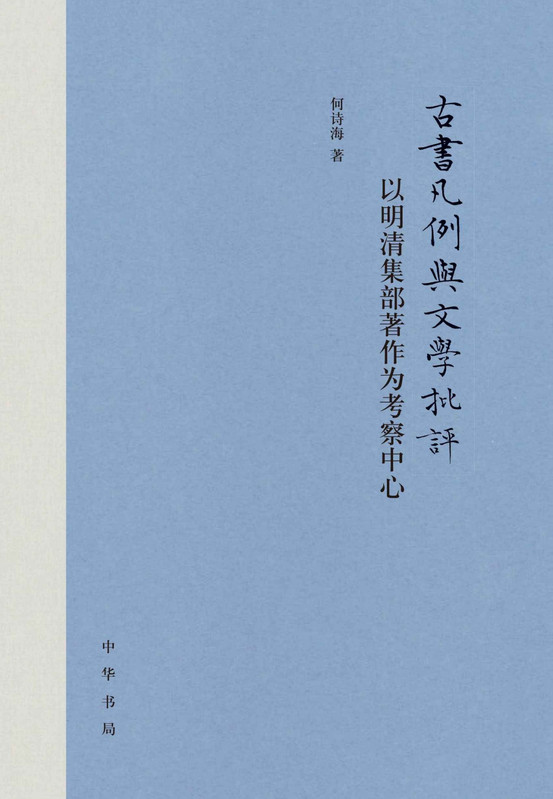 古書凡例與文學批評
以明清集部著作为考察中心
何诗海 著
中华书局